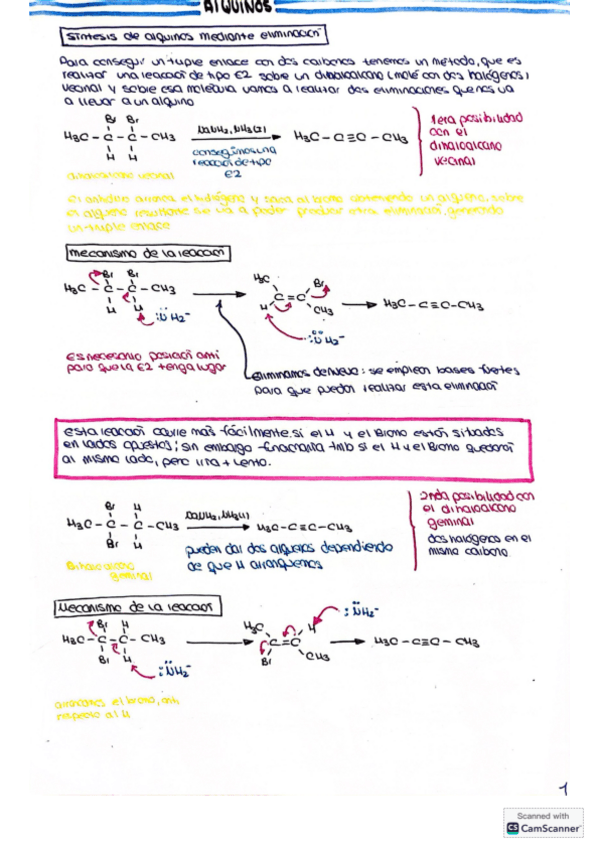 ALQUINOS
Síntesis de alquinos mediante eliminación
Para conseguir un triple enlace con dos carbonos tenemos un método, que es
realizar una reacción de tipo E2 sobre un dihaloalcano (molé con dos halógenos)
vecinal y sobre esa molécula vamos a realizar dos eliminaciones que nos va
a llevar a un alquino
Br Br
H3C - C - C - CH3
H H
NaNH2, NH3(l)
H3C - C≡C - CH3
conseguimos una
reacción de tipo
E2
1era posibilidad
con el
dihaloalcano
vecinal
dihaloalcano vecinal
el alqueno resultante se va a poder producir otra eliminación, generando
un triple enlace
Mecanismo de la reacción
Br Br
H3C - C - C - CH3
H H
:NH2-
H3C
Br
C=C
H
CH3
:NH2-
H3C-C≡C-CH3
Es necesario posición anti
para que la E2 tenga lugar
Eliminamos de nuevo: se emplean bases fuertes
para que puedan realizar esta eliminación
Esta reacción ocurre más fácilmente si el H y el Bromo están situados
en lados opuestos; sin embargo funcionaría tmb si el H y el Bromo quedaran
al mismo lado, pero iría + lento.
Br H
H3C - C - C - CH3
Br H
NaNH2, NH3(l)
H3C-C≡C-CH3
pueden dar dos alquenos dependiendo
de que H arranquemos
2nda posibilidad con
el dihaloalcano
geminal
dos halógenos en el
mismo carbono
geminal
Mecanismo de la reacción
Br H
H3C - C - C - CH3
Br H
:NH2-
H3C
H
C=C
Br
CH3
:NH2-
H3C - C≡C - CH3
arrancamos el bromo, anti
respecto al H
1
Scanned with
CS CamScanner